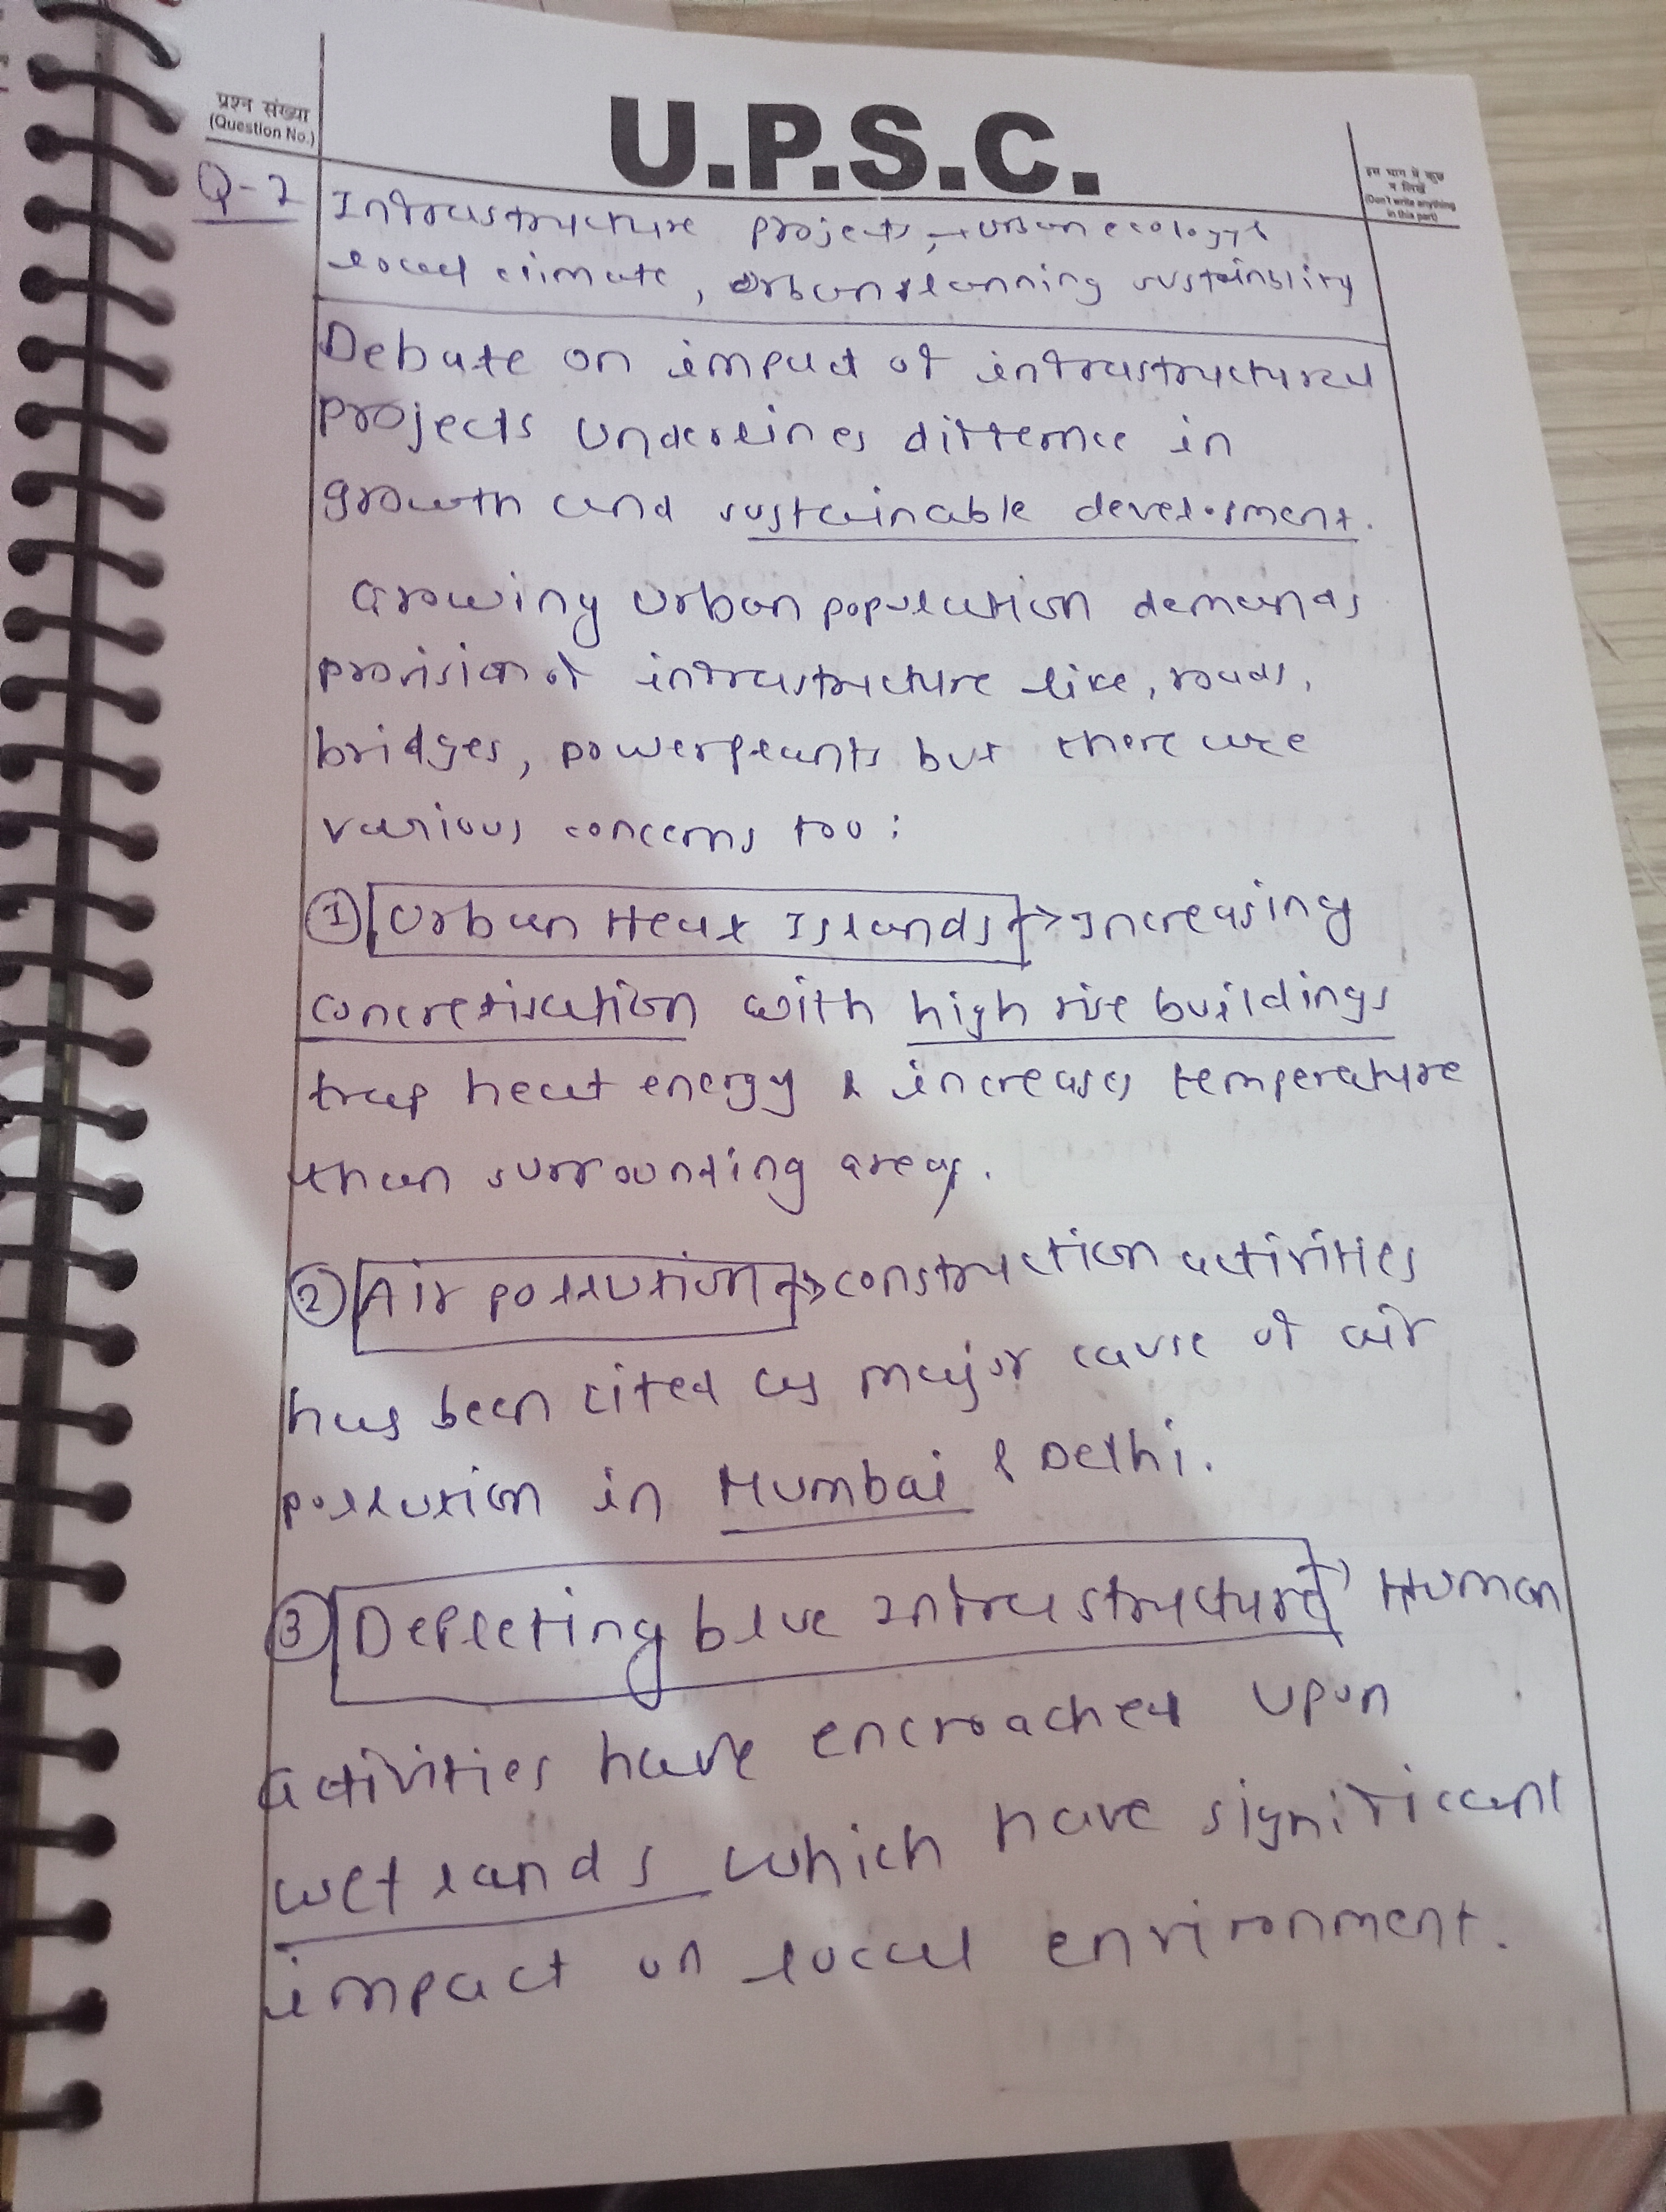 प्रश्न संख्या
(Question No.)
U.P.S.C.
इस भाग में कुछ
न लिखें
(Don't write anything
in this part)
Infrastructure projects, urban ecology &
local climate, urban planning sustainblity
Debate on impact of infrastructural
projects underlines differnce in
growth and sustainable development.
Growing urban population demands
provision of infrastructure like, roads,
bridges, powerplants but there are
various concerns too:
① Urban Heat Islands → Increasing
concretisation with high rise buildings
trap heat energy & increases temperature
than surrounding areas.
② Air pollution → construction activities
has been cited as major cause of air
pollution in Mumbai & Delhi.
③ Depleting blue infrastructure Human
activities have encroached upon
wetlands which have significant
impact on local environment.